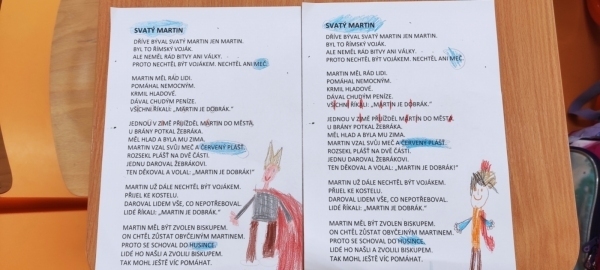 SVATÝ MARTIN
DŘÍVE BÝVAL SVATÝ MARTIN JEN MARTIN.
BYL TO ŘÍMSKÝ VOJÁK.
ALE NEMĚL RÁD BITVY ANI VÁLKY.
PROTO NECHTĚL BÝT VOJÁKEM. NECHTĚL ANI MEČ.
MARTIN MĚL RÁD LIDI.
POMÁHAL NEMOCNÝM.
KRMIL HLADOVÉ.
DÁVAL CHUDÝM PENÍZE.
VŠICHNI ŘÍKALI: „MARTIN JE DOBRÁK.“
JEDNOU V ZIMĚ PŘIJÍŽDĚL MARTIN DO MĚSTA.
U BRÁNY POTKAL ŽEBRÁKA.
MĚL HLAD A BYLA MU ZIMA.
MARTIN VZAL SVŮJ MEČ A ČERVENÝ PLÁŠŤ.
ROZSEKL PLÁŠŤ NA DVĚ ČÁSTI.
JEDNU DAROVAL ŽEBRÁKOVI.
TEN DĚKOVAL A VOLAL: „MARTIN JE DOBRÁK!“
MARTIN UŽ DÁLE NECHTĚL BÝT VOJÁKEM.
PŘIJEL KE KOSTELU.
DAROVAL LIDEM VŠE, CO NEPOTŘEBOVAL.
LIDÉ ŘÍKALI: „MARTIN JE DOBRÁK.“
MARTIN MĚL BÝT ZVOLEN BISKUPEM.
ON CHTĚL ZŮSTAT OBYČEJNÝM MARTINEM.
PROTO SE SCHOVAL DO HUSINCE.
LIDÉ HO NAŠLI A ZVOLILI BISKUPEM.
TAK MOHL JEŠTĚ VÍC POMÁHAT.
SVATÝ MARTIN
DŘÍVE BÝVAL SVATÝ MARTIN JEN MARTIN.
BYL TO ŘÍMSKÝ VOJÁK.
ALE NEMĚL RÁD BITVY ANI VÁLKY.
PROTO NECHTĚL BÝT VOJÁKEM. NECHTĚL ANI MEČ.
MARTIN MĚL RÁD LIDI.
POMÁHAL NEMOCNÝM.
KRMIL HLADOVÉ.
DÁVAL CHUDÝM PENÍZE.
VŠICHNI ŘÍKALI: „MARTIN JE DOBRÁK.“
JEDNOU V ZIMĚ PŘIJÍŽDĚL MARTIN DO MĚSTA.
U BRÁNY POTKAL ŽEBRÁKA.
MĚL HLAD A BYLA MU ZIMA.
MARTIN VZAL SVŮJ MEČ A ČERVENÝ PLÁŠŤ.
ROZSEKL PLÁŠŤ NA DVĚ ČÁSTI.
JEDNU DAROVAL ŽEBRÁKOVI.
TEN DĚKOVAL A VOLAL: „MARTIN JE DOBRÁK!“
MARTIN UŽ DÁLE NECHTĚL BÝT VOJÁKEM.
PŘIJEL KE KOSTELU.
DAROVAL LIDEM VŠE, CO NEPOTŘEBOVAL.
LIDÉ ŘÍKALI: „MARTIN JE DOBRÁK.“
MARTIN MĚL BÝT ZVOLEN BISKUPEM.
ON CHTĚL ZŮSTAT OBYČEJNÝM MARTINEM.
PROTO SE SCHOVAL DO HUSINCE.
LIDÉ HO NAŠLI A ZVOLILI BISKUPEM.
TAK MOHL JEŠTĚ VÍC POMÁHAT.